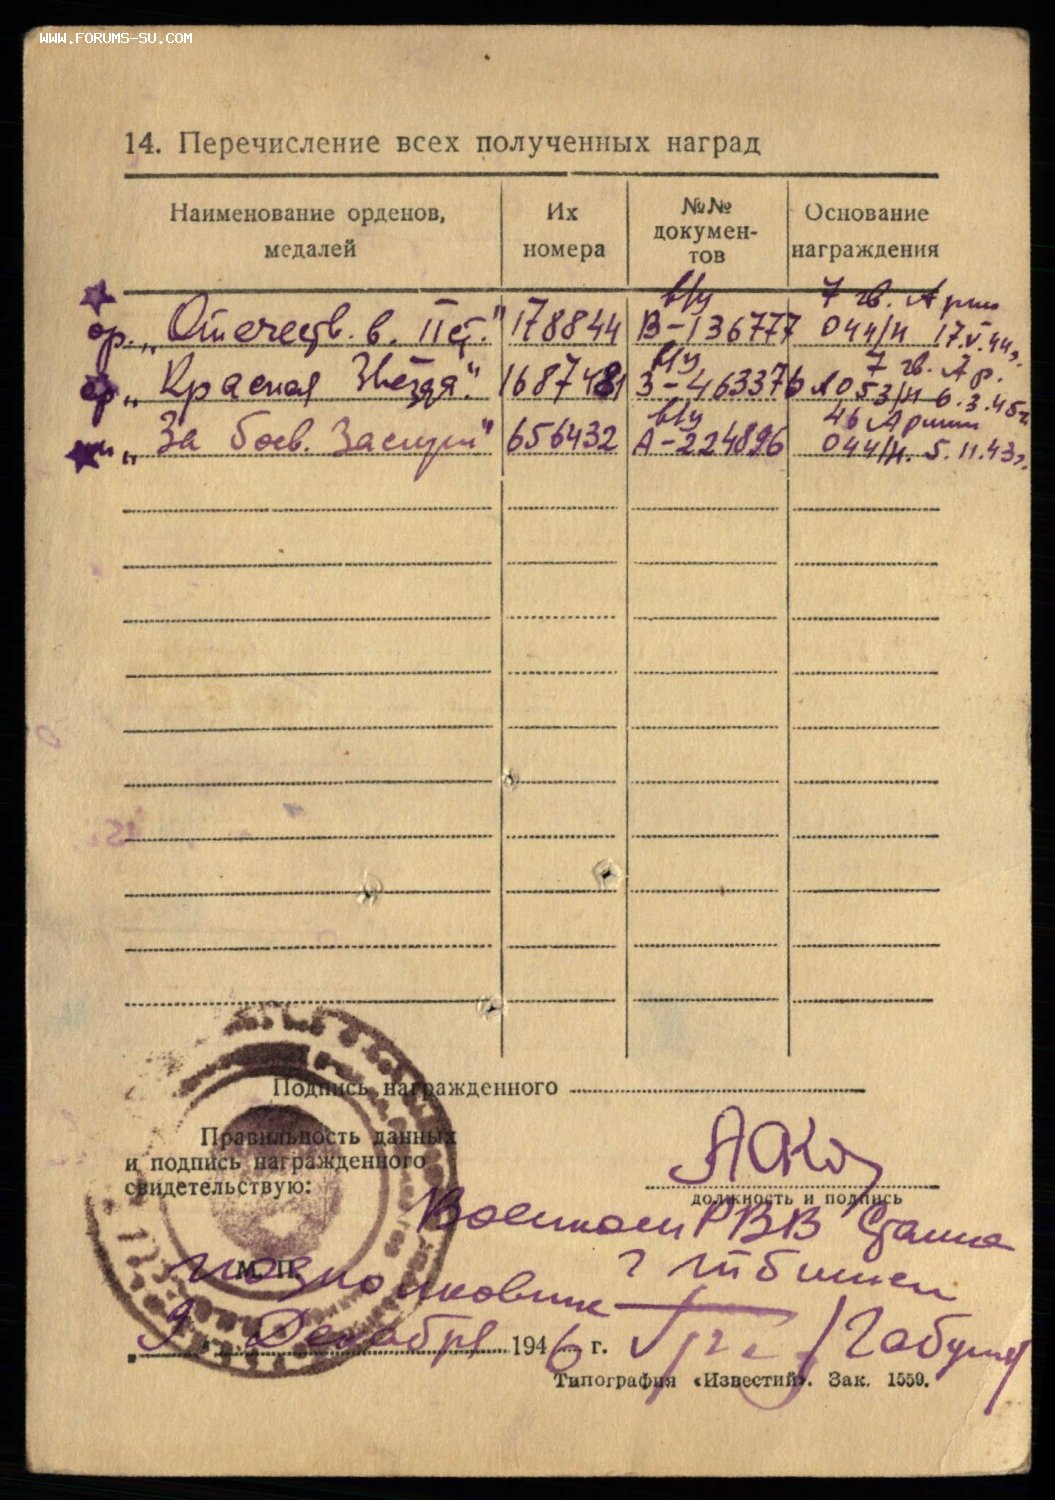 WWW.FORUMS-SU.COM
14. Перечисление всех полученных наград
Наименование орденов, медалей
Их номера
№№ докумен-тов
Основание награждения
в/у 7 гв. Арми
ор. „Отечеств. в. II ст." 178844 В-136777 044/н 17.V.44г.
в/у 7 гв. Ар.
ор „Красная Звезда." 1687481 З-463376 053/н 6.3.45г
в/у 46 Армии
м „За боев. Заслуги" 656432 А-224896 044/н. 5.11.43г.
Подпись награжденного
Правильность данных
и подпись награжденного
свидетельствую:
должность и подпись
Военком РВК Сталина
г Тбилиси
М. П.
подполковник
9 Декабря 1946 г.
Типография «Известий». Зак. 1559.